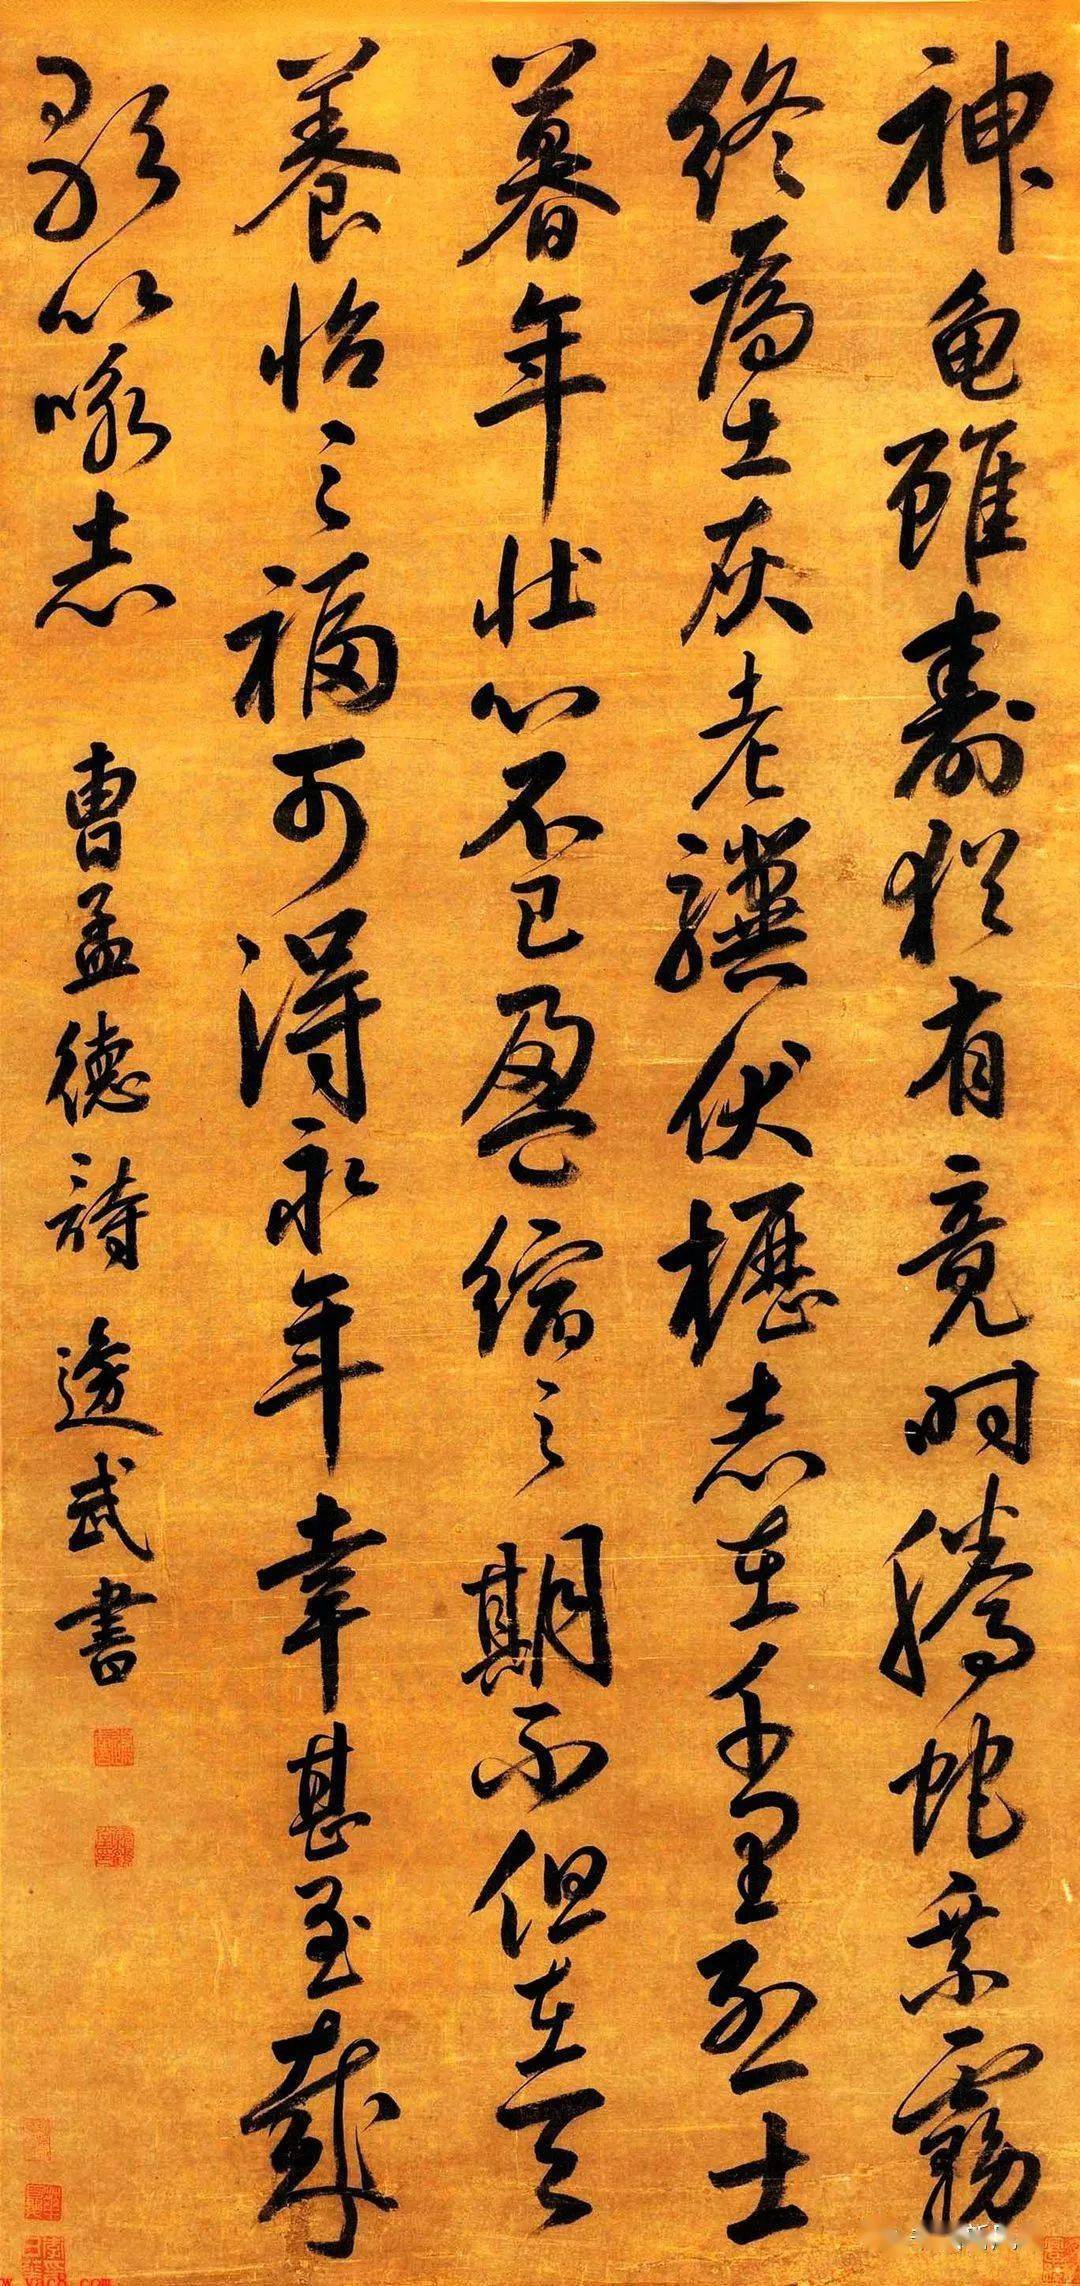 神龜雖壽猶有竟時騰蛇乘霧
終為土灰老驥伏櫪志在千里烈士
暮年壯心不已盈縮之期不但在天
養怡之福可得永年幸甚至哉
歌以咏志 曹孟德詩 邊武書
w.yac8.com